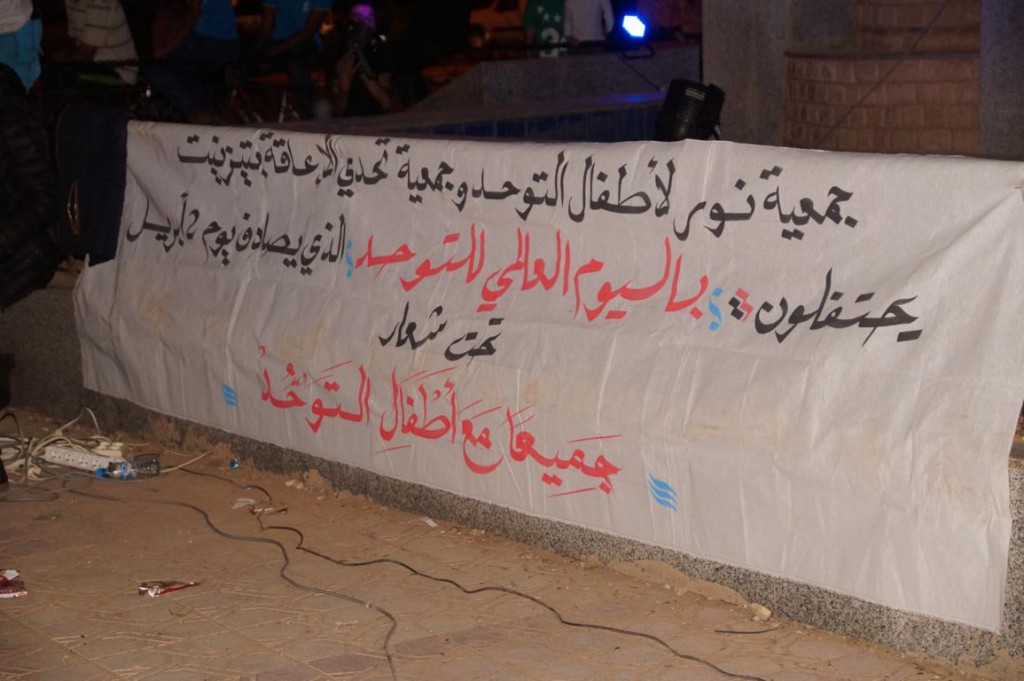 جمعية نور لأطفال التوحد وجمعية تحدي الإعاقة بتيزنيت
يحتفلون :؛ باليوم العالمي للتوحد ؛ الذي يصادف يوم 2 أبريل
تحت شعار
جَمِيعًا مَعَ أَطْفَالِ التَّوَحُّدْ